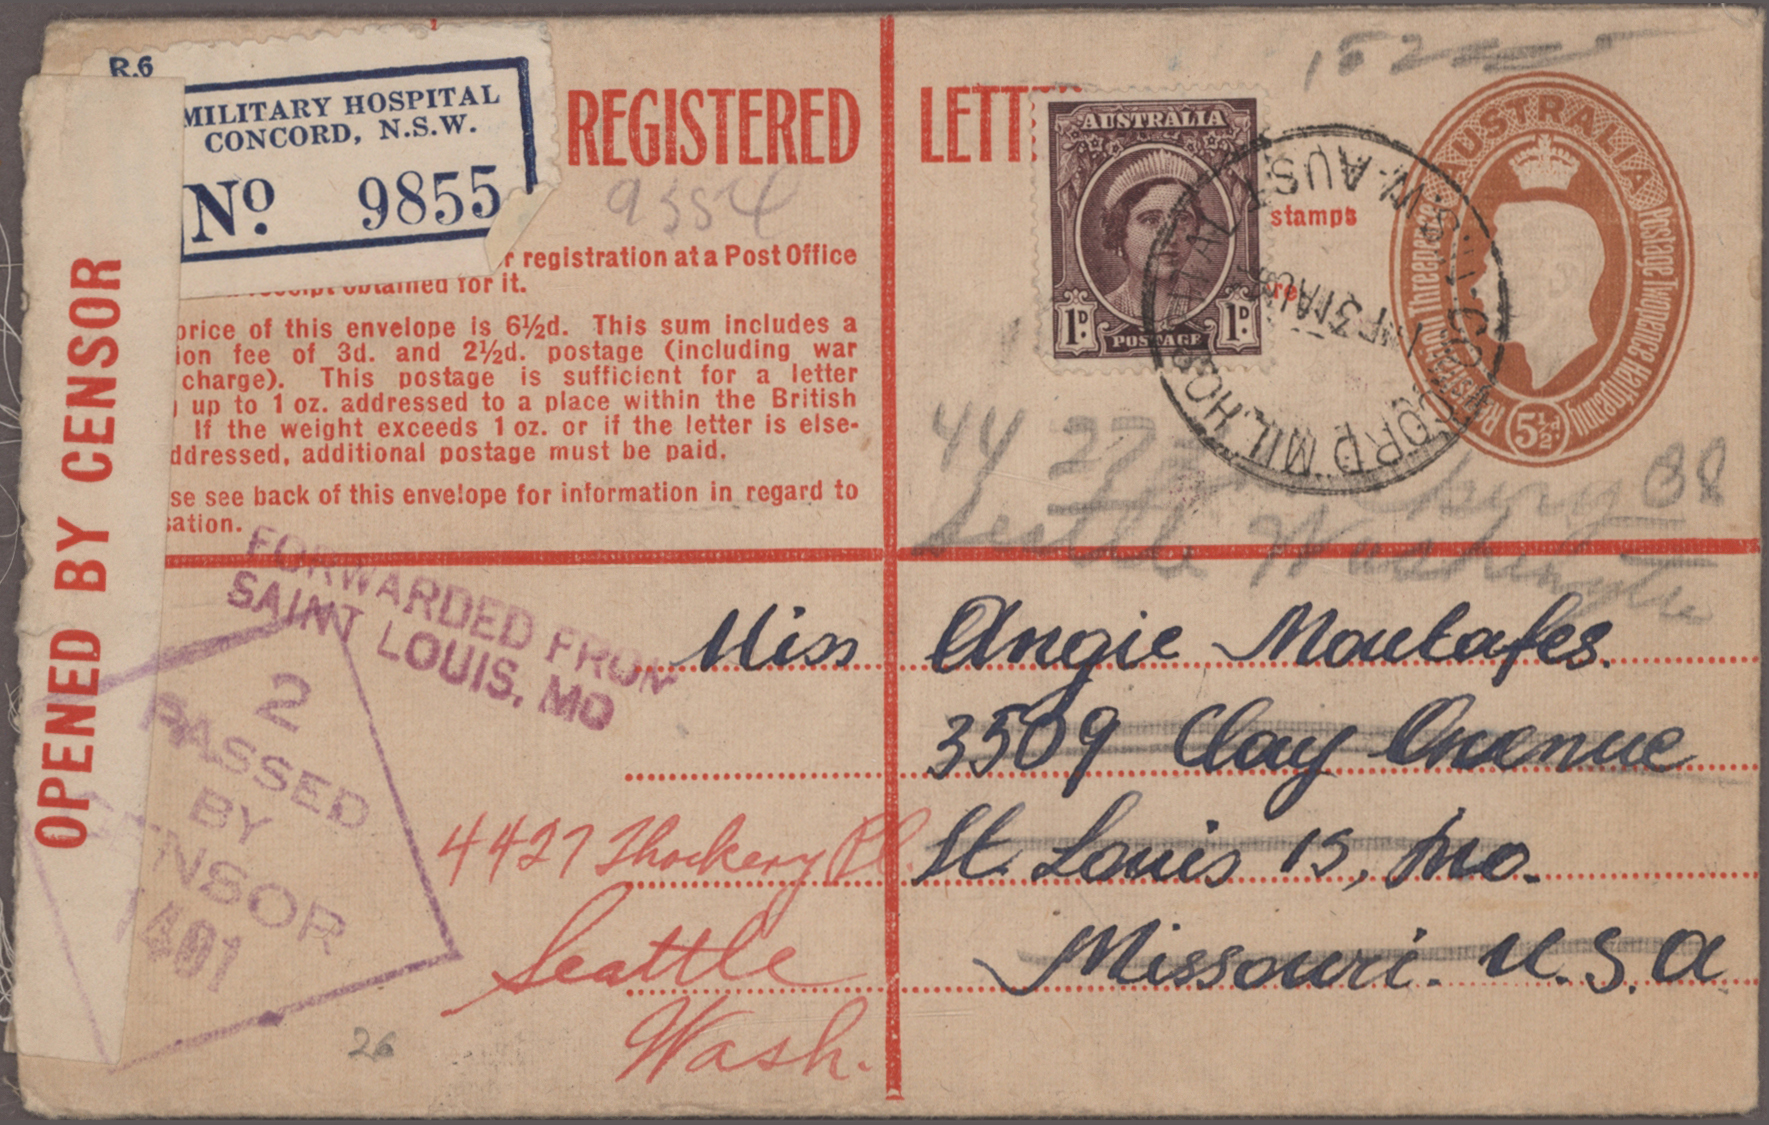 R.6
MILITARY HOSPITAL
CONCORD, N.S.W.
No. 9855
OPENED BY CENSOR
REGISTERED LETT
9554
152
AUSTRALIA
1D 1D
POSTAGE
stamps
re
AUSTRALIA
Postage Twopence Halfpenny
Threepence
5½d
MIL. HOSPITAL
N.S.W. AUST
r registration at a Post Office
receipt obtained for it.
price of this envelope is 6½d. This sum includes a
ion fee of 3d. and 2½d. postage (including war
charge). This postage is sufficient for a letter
up to 1 oz. addressed to a place within the British
If the weight exceeds 1 oz. or if the letter is else-
ddressed, additional postage must be paid.
se see back of this envelope for information in regard to
sation.
44 27
Seattle Washington
FORWARDED FROM
SAINT LOUIS, MO
2
PASSED
BY
ENSOR
Miss Angie Moutafes.
3509 Clay Avenue
St. Louis 15, Mo.
Missouri. U.S.A
4427 Thackery Pl.
Seattle
Wash.
26